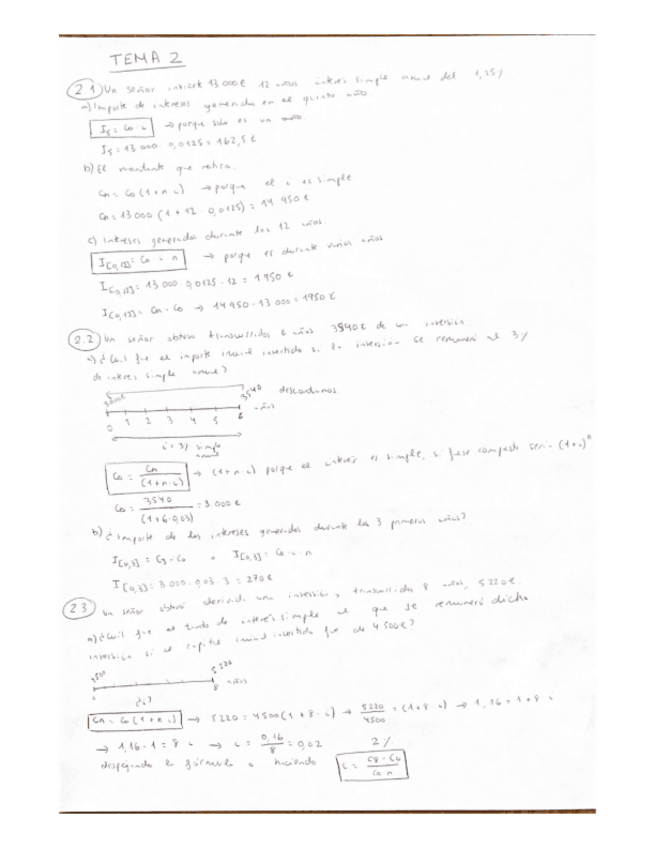 TEMA 2
2.1) Un señor invierte 13 000 € 12 años interés simple anual del 1,25%
a) Importe de intereses generados en el quinto año.
I5 = Co · i → porque solo es un año.
I5 = 13 000 · 0,0125 = 162,5 €
b) El montante que retira.
Cn = Co (1 + n · i) → porque el i es simple.
Cn = 13 000 (1 + 12 · 0,0125) = 14 950 €
c) Intereses generados durante los 12 años.
I[0,12] = Co · i · n → porque es durante varios años
I[0,12] = 13 000 · 0,0125 · 12 = 1 950 €
I[0,12] = Cn - Co → 14 950 - 13 000 = 1950 €
2.2) Un señor obtuvo transcurridos 6 años 3540 € de una inversión.
a) ¿Cuál fue el importe inicial invertido si la inversión se remuneró al 3%
de interés simple anual?
3540 descontamos
0 1 2 3 4 5 6 años
i = 3% simple
anual
Co = Cn / (1 + n · i) → (1 + n · i) porque el interés es simple, si fuese compuesto sería (1 + i)^n
Co = 3540 / (1 + 6 · 0,03) = 3 000 €
b) ¿Importe de los intereses generados durante los 3 primeros años?
I[0,3] = C3 - Co o I[0,3] = Co · i · n
I[0,3] = 3 000 · 0,03 · 3 = 270 €
2.3) Un señor obtuvo de una inversión, transcurridos 8 años, 5 220 €.
a) ¿Cuál fue el tanto de interés simple al que se remuneró dicha
inversión si el capital inicial invertido fue de 4 500 €?
4500 5220
8 años
¿i?
Cn = Co (1 + n · i) → 5220 = 4500 (1 + 8 · i) → 5220 / 4500 = (1 + 8 · i) → 1,16 = 1 + 8 · i
→ 1,16 - 1 = 8 i → i = 0,16 / 8 = 0,02 2%
despejando la fórmula o haciendo i = C8 - Co / Co · n